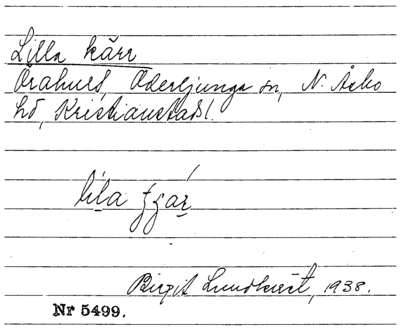 Lilla kärr
Örahus, Oderljunga sn, N. Åsbo
hd, Kristianstads l.
lila
Birgit Lundkvist, 1938.
Nr 5499.